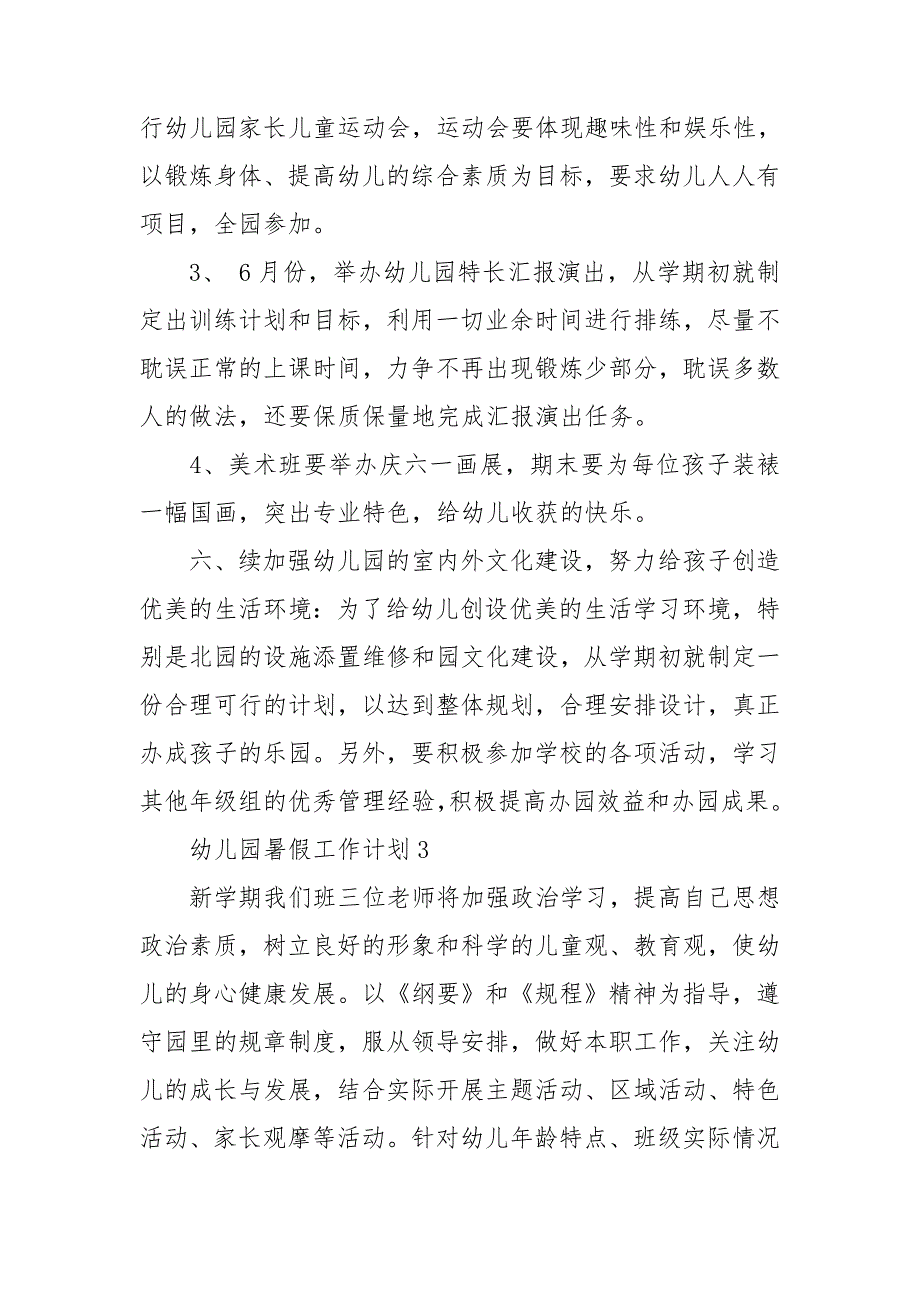 行幼儿园家长儿童运动会，运动会要体现趣味性和娱乐性，
以锻炼身体、提高幼儿的综合素质为目标，要求幼儿人人有
项目，全园参加。
3、 6月份，举办幼儿园特长汇报演出，从学期初就制
定出训练计划和目标，利用一切业余时间进行排练，尽量不
耽误正常的上课时间，力争不再出现锻炼少部分，耽误多数
人的做法，还要保质保量地完成汇报演出任务。
4、美术班要举办庆六一画展，期末要为每位孩子装裱
一幅国画，突出专业特色，给幼儿收获的快乐。
六、续加强幼儿园的室内外文化建设，努力给孩子创造
优美的生活环境：为了给幼儿创设优美的生活学习环境，特
别是北园的设施添置维修和园文化建设，从学期初就制定一
份合理可行的计划，以达到整体规划，合理安排设计，真正
办成孩子的乐园。另外，要积极参加学校的各项活动，学习
其他年级组的优秀管理经验，积极提高办园效益和办园成果。
幼儿园暑假工作计划3
新学期我们班三位老师将加强政治学习，提高自己思想
政治素质，树立良好的形象和科学的儿童观、教育观，使幼
儿的身心健康发展。以《纲要》和《规程》精神为指导，遵
守园里的规章制度，服从领导安排，做好本职工作，关注幼
儿的成长与发展，结合实际开展主题活动、区域活动、特色
活动、家长观摩等活动。针对幼儿年龄特点、班级实际情况